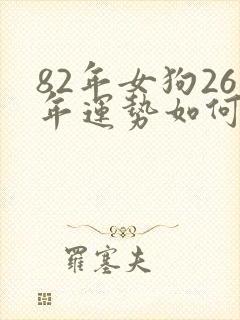 82年女狗26
年運勢如何
羅塞夫